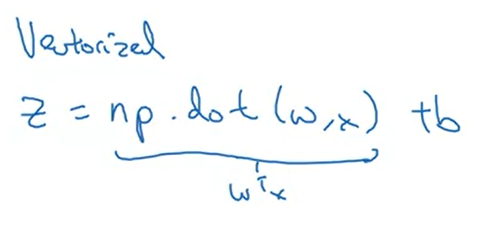 Vectorized
z = np.dot(w,x) +b
wᵀx